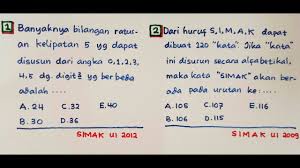 1 Banyaknya bilangan ratus-
an kelipatan 5 yg dapat
disusun dari angka 0,1,2,3,
4,5 dg. digit² yg berbeda
adalah ....
A. 24 C. 32 E. 40
B. 30 D. 36
SIMAK UI 2012
2 Dari huruf S,I,M,A,K dapat
dibuat 120 "kata". Jika "kata"
ini disusun secara alfabetikal,
maka kata "SIMAK" akan ber-
ada pada urutan ke: ....
A. 105 C. 107 E. 116
B. 106 D. 115
SIMAK UI 2009